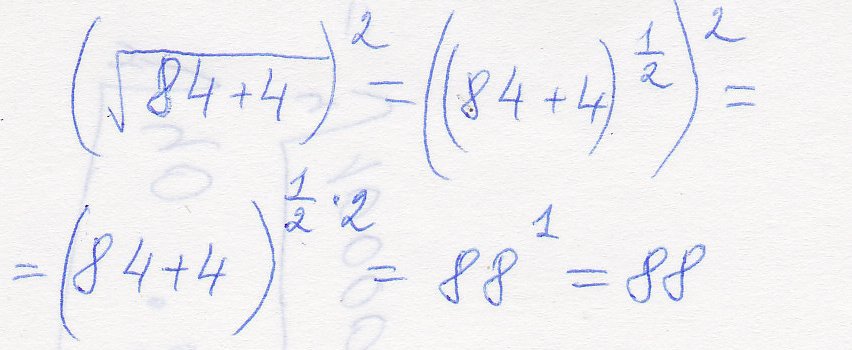 (√84+4)² = ((84+4)^½)² =
= (84+4)^½·² = 88¹ = 88